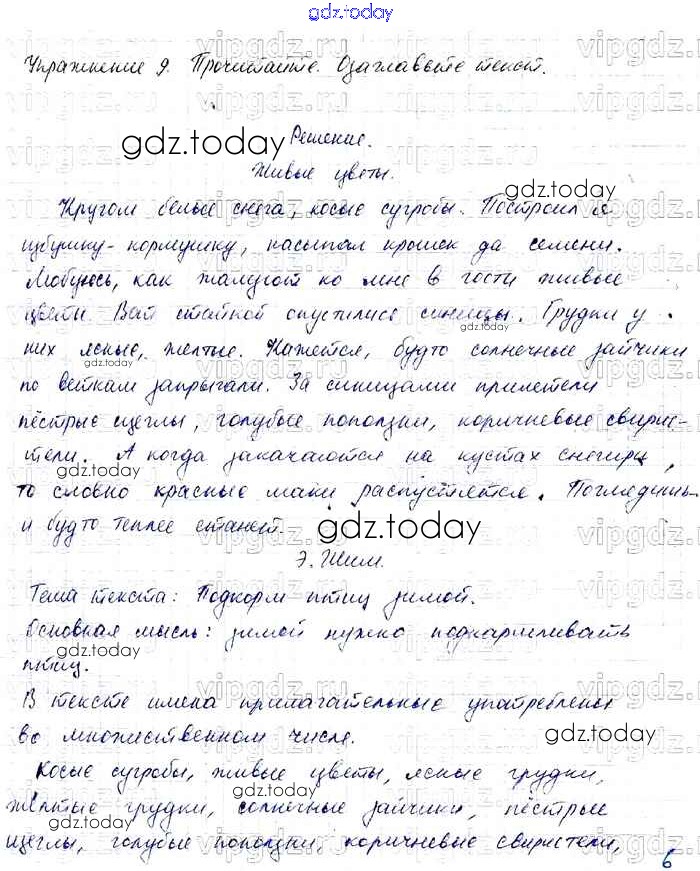 gdz.today
Упражнение 9. Прочитайте. Озаглавьте текст.
gdz.today
Решение.
Живые цветы.
gdz.today
Кругом белые снега, косые сугробы. Построил я
избушку-кормушку, насыпал крошек да семени.
Любуюсь, как жалуют ко мне в гости живые
цветы. Вот стайкой опустились синицы. Грудки у
gdz.today
них ясные, желтые. Кажется, будто солнечные зайчики
по веткам запрыгали. За синицами прилетели
пёстрые щеглы, голубые поползни, коричневые свирис-
тели. А когда закачаются на кустах снегири,
gdz.today
то словно красные маки распустятся. Поглядишь-
и будто теплее станет.
gdz.today
Э. Шим.
Тема текста: Подкорм птиц зимой.
Основная мысль: зимой нужно подкармливать
gdz.today
птиц.
В тексте имена прилагательные употреблены
во множественном числе.
gdz.today
Косые сугробы, живые цветы, ясные грудки,
gdz.today
жёлтые грудки, солнечные зайчики, пёстрые
gdz.today
щеглы, голубые поползни, коричневые свиристели,
gdz.today
6